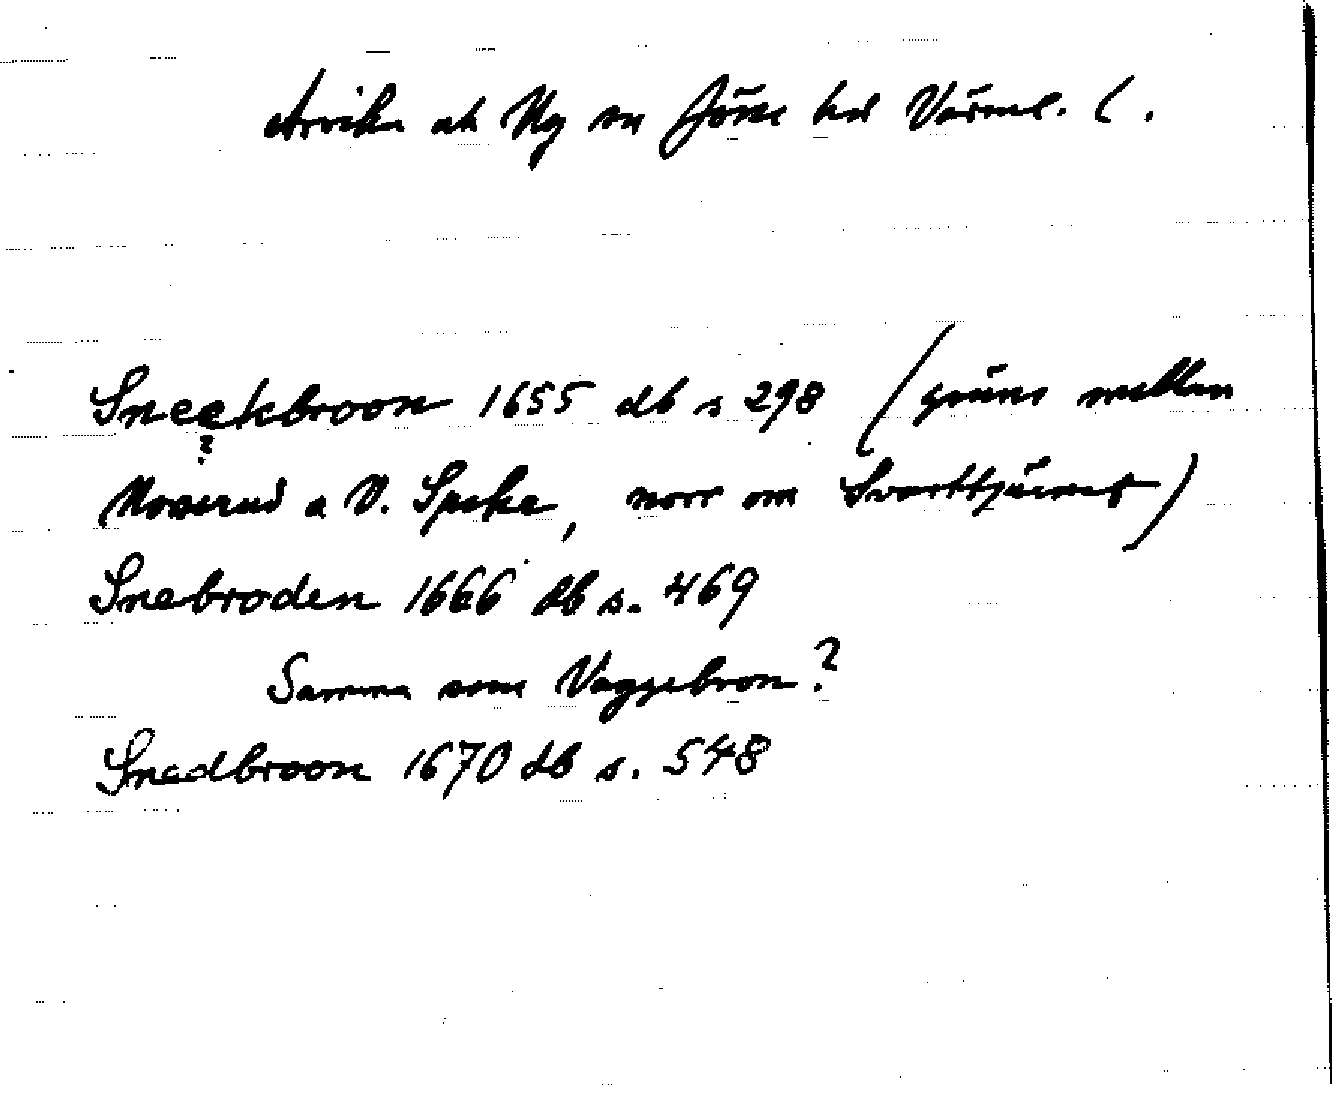 Arvika ak Ny sn Jösse hd Värml. l.
Sneekbroon 1655 db s 298 (gräns mellan
?
Noserud o V. Speke, norr om Svarttjärnet)
Snebroden 1666 db s. 469
Samma som Vaggebron?
Snedbroon 1670 db s. 548